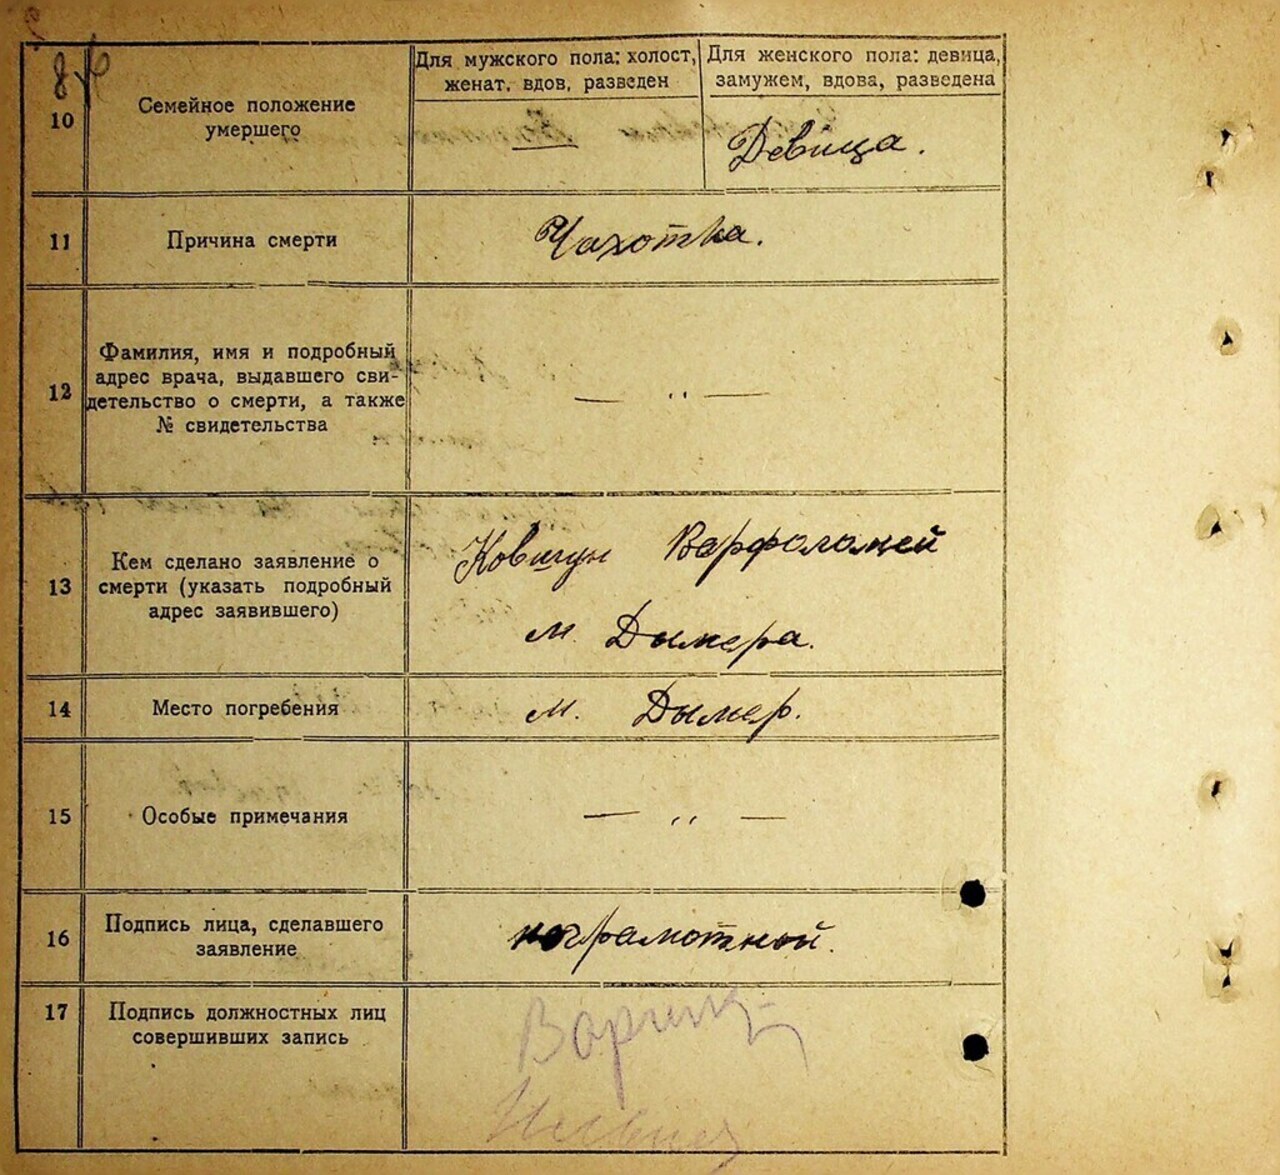 10
Семейное положение
умершего
Для мужского пола: холост,
женат, вдов, разведен
Для женского пола: девица,
замужем, вдова, разведена
—
Девица.
11
Причина смерти
Чахотка.
12
Фамилия, имя и подробный
адрес врача, выдавшего сви-
детельство о смерти, а также
№ свидетельства
— „ —
13
Кем сделано заявление о
смерти (указать подробный
адрес заявившего)
Варфоломей
м. Дымера.
14
Место погребения
м. Дымер.
15
Особые примечания
— „ —
16
Подпись лица, сделавшего
заявление
неграмотной.
17
Подпись должностных лиц
совершивших запись